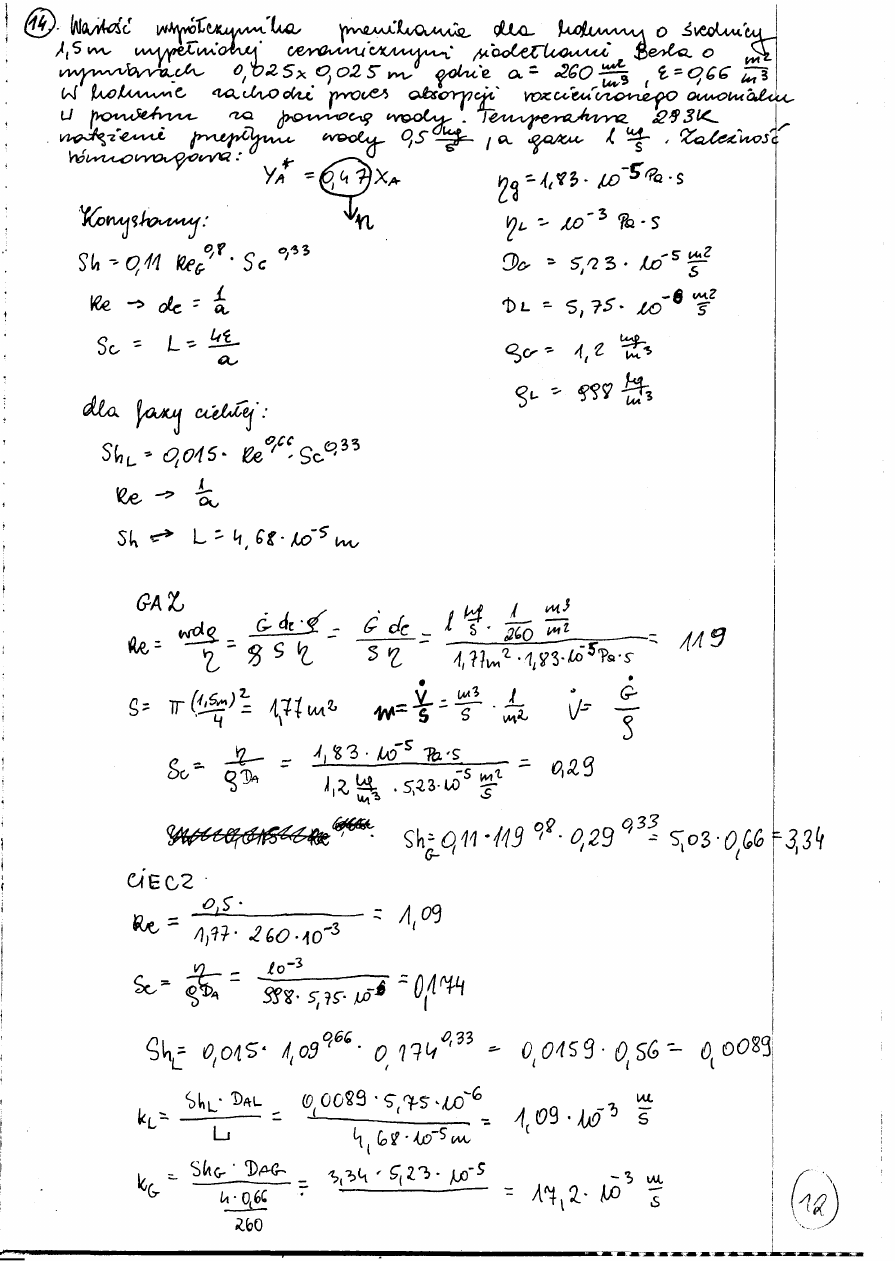 14. Wartość współczynnika przenikania dla kolumny o średnicy
1,5m wypełnionej ceramicznymi siodełkami Berla o
wymiarach 0,025x0,025m gdzie a = 260 m²/m³, ε=0,66 m²/m³
W kolumnie zachodzi proces absorpcji rozcieńczonego amoniaku
w powietrzu za pomocą wody. Temperatura 293K
natężenie przepływu wody 0,5 kg/s, a gazu 1 kg/s. Zależność
równowagowa:
YA* = 0,47 XA
↓ n
ηg = 1,83 · 10⁻⁵ Pa·s
Korzystamy:
ηL = 10⁻³ Pa·s
Sh = 0,11 ReG^0,8 · Sc^0,33
DG = 5,23 · 10⁻⁵ m²/s
Re → de = 1/a
DL = 5,75 · 10⁻⁶ m²/s
Sc = L = 4ε/a
ρG = 1,2 kg/m³
ρL = 998 kg/m³
dla fazy ciekłej:
ShL = 0,015 · Re^0,66 · Sc^0,33
Re → 1/a
Sh → L = 4,68·10⁻⁵ m
GAZ
Re = wdρ/η = Ġ de·ρ/ρ S η = Ġ de/S η = 1 kg/s · 1/260 m³/m² / 1,77m² · 1,83·10⁻⁵ Pa·s = 119
S = π (1,5m)²/4 = 1,77m² w = V̇/S = m³/s · 1/m² V̇ = Ġ/ρ
Sc = η/ρDA = 1,83 · 10⁻⁵ Pa·s / 1,2 kg/m³ · 5,23·10⁻⁵ m²/s = 0,29
ShG = 0,11·119^0,8 · 0,29^0,33 = 5,03·0,66 = 3,34
CIECZ
Re = 0,5· / 1,77 · 260·10⁻³ = 1,09
Sc = η/ρDA = 10⁻³ / 998 · 5,75 · 10⁻⁶ = 0,174
ShL = 0,015 · 1,09^0,66 · 0,174^0,33 = 0,0159 · 0,56 = 0,0089
kL = ShL · DAL / L = 0,0089 · 5,75·10⁻⁶ / 4,68·10⁻⁵ m = 1,09·10⁻³ m/s
kG = ShG · DAG / 4·0,66/260 = 3,34 · 5,23 · 10⁻⁵ = 17,2 · 10⁻³ m/s
12